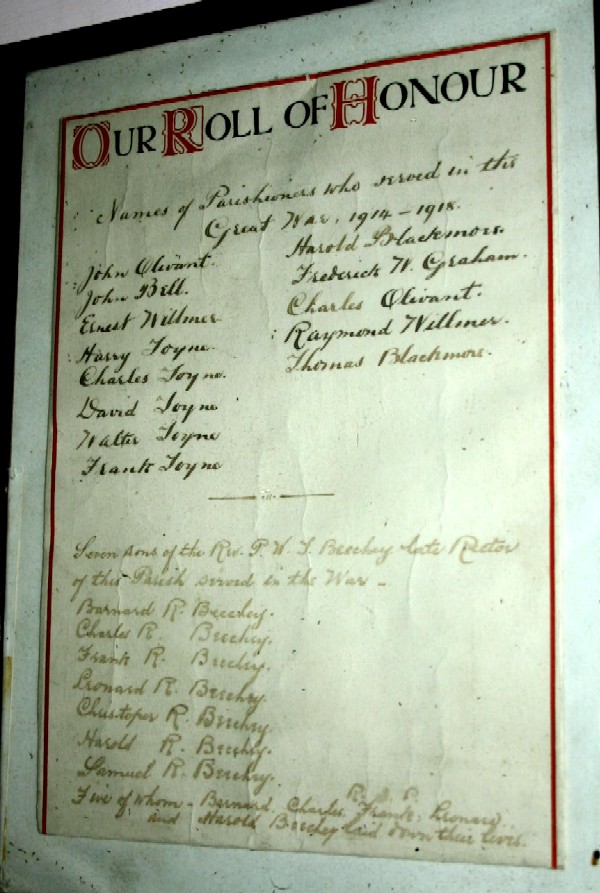 OUR ROLL OF HONOUR
Names of Parishioners who served in the
Great War, 1914 – 1918.
John Olivant.
John Bell.
Ernest Willmer
Harry Toyne.
Charles Toyne.
David Toyne
Walter Toyne
Frank Toyne
Harold Blackmore.
Frederick W. Graham.
Charles Olivant.
Raymond Willmer.
Thomas Blackmore.
Seven sons of the Rev. P. W. T. Beechey late Rector
of this Parish served in the War –
Barnard R. Beechey.
Charles R. Beechey.
Frank R. Beechey.
Leonard R. Beechey.
Christoper R. Beechey
Harold R. Beechey.
Samuel R. Beechey.
Five of whom – Barnard, Charles, Frank, Leonard,
and Harold Beechey laid down their lives.